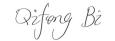 Qifeng Bi